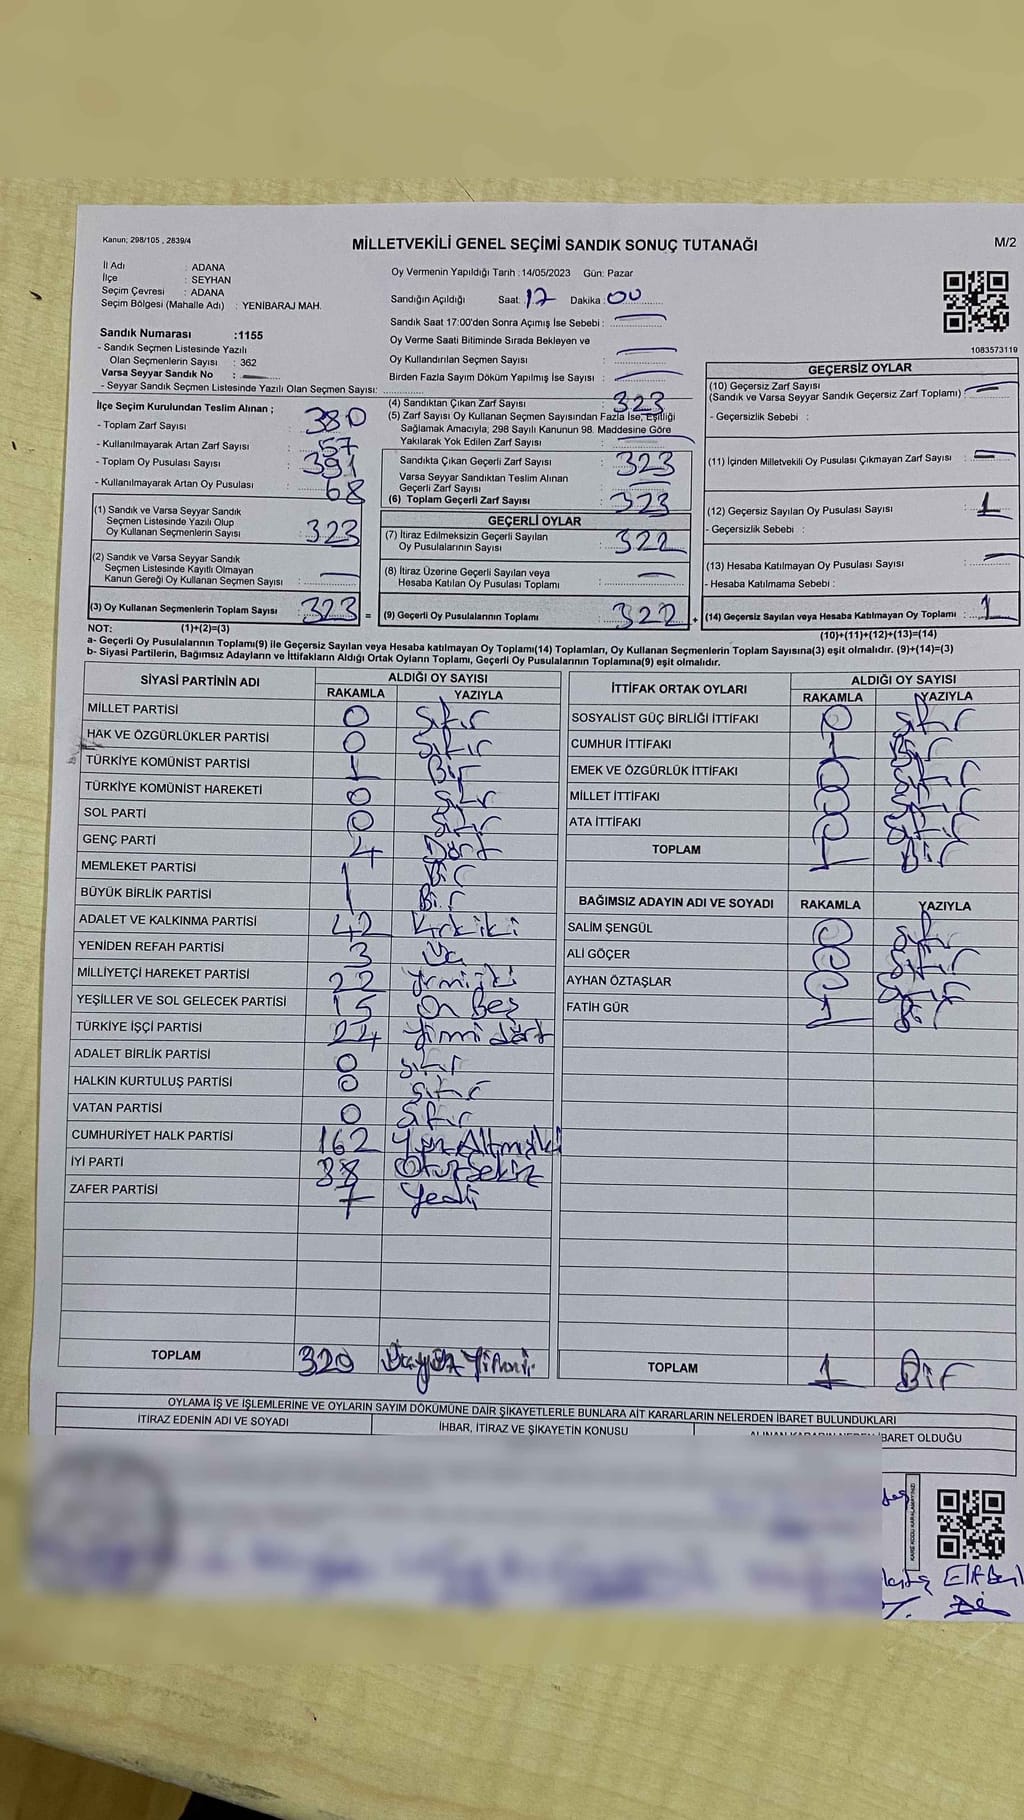 Kanun; 298/105 , 2839/4
MİLLETVEKİLİ GENEL SEÇİMİ SANDIK SONUÇ TUTANAĞI
M/2
İl Adı : ADANA
İlçe : SEYHAN
Seçim Çevresi : ADANA
Seçim Bölgesi (Mahalle Adı) : YENİBARAJ MAH.
Oy Vermenin Yapıldığı Tarih :14/05/2023 Gün: Pazar
Sandığın Açıldığı Saat: 17 Dakika: 00
Sandık Saat 17:00'den Sonra Açımış İse Sebebi :
Oy Verme Saati Bitiminde Sırada Bekleyen ve
Oy Kullandırılan Seçmen Sayısı :
Birden Fazla Sayım Döküm Yapılmış İse Sayısı :
1083573119
Sandık Numarası :1155
- Sandık Seçmen Listesinde Yazılı
Olan Seçmenlerin Sayısı : 362
Varsa Seyyar Sandık No :
- Seyyar Sandık Seçmen Listesinde Yazılı Olan Seçmen Sayısı:
İlçe Seçim Kurulundan Teslim Alınan ;
- Toplam Zarf Sayısı : 380
- Kullanılmayarak Artan Zarf Sayısı : 57
- Toplam Oy Pusulası Sayısı : 391
- Kullanılmayarak Artan Oy Pusulası : 68
(1) Sandık ve Varsa Seyyar Sandık
Seçmen Listesinde Yazılı Olup
Oy Kullanan Seçmenlerin Sayısı : 323
(2) Sandık ve Varsa Seyyar Sandık
Seçmen Listesinde Kayıtlı Olmayan
Kanun Gereği Oy Kullanan Seçmen Sayısı :
(3) Oy Kullanan Seçmenlerin Toplam Sayısı : 323 =
(4) Sandıktan Çıkan Zarf Sayısı : 323
(5) Zarf Sayısı Oy Kullanan Seçmen Sayısından Fazla İse, Eşitliği
Sağlamak Amacıyla; 298 Sayılı Kanunun 98. Maddesine Göre
Yakılarak Yok Edilen Zarf Sayısı :
Sandıkta Çıkan Geçerli Zarf Sayısı : 323
Varsa Seyyar Sandıktan Teslim Alınan
Geçerli Zarf Sayısı :
(6) Toplam Geçerli Zarf Sayısı : 323
GEÇERLİ OYLAR
(7) İtiraz Edilmeksizin Geçerli Sayılan
Oy Pusulalarının Sayısı : 322
(8) İtiraz Üzerine Geçerli Sayılan veya
Hesaba Katılan Oy Pusulası Toplamı :
(9) Geçerli Oy Pusulalarının Toplamı : 322 +
GEÇERSİZ OYLAR
(10) Geçersiz Zarf Sayısı
(Sandık ve Varsa Seyyar Sandık Geçersiz Zarf Toplamı) :
- Geçersizlik Sebebi :
(11) İçinden Milletvekili Oy Pusulası Çıkmayan Zarf Sayısı :
(12) Geçersiz Sayılan Oy Pusulası Sayısı : 1
- Geçersizlik Sebebi :
(13) Hesaba Katılmayan Oy Pusulası Sayısı :
- Hesaba Katılmama Sebebi :
(14) Geçersiz Sayılan veya Hesaba Katılmayan Oy Toplamı : 1
NOT: (1)+(2)=(3)
(10)+(11)+(12)+(13)=(14)
a- Geçerli Oy Pusulalarının Toplamı(9) ile Geçersiz Sayılan veya Hesaba katılmayan Oy Toplamı(14) Toplamları, Oy Kullanan Seçmenlerin Toplam Sayısına(3) eşit olmalıdır. (9)+(14)=(3)
b- Siyasi Partilerin, Bağımsız Adayların ve İttifakların Aldığı Ortak Oyların Toplamı, Geçerli Oy Pusulalarının Toplamına(9) eşit olmalıdır.
SİYASİ PARTİNİN ADI ALDIĞI OY SAYISI
RAKAMLA YAZIYLA
MİLLET PARTİSİ 0 Sıfır
HAK VE ÖZGÜRLÜKLER PARTİSİ 0 Sıfır
TÜRKİYE KOMÜNİST PARTİSİ 1 Bir
TÜRKİYE KOMÜNİST HAREKETİ 0 Sıfır
SOL PARTİ 0 Sıfır
GENÇ PARTİ 4 Dört
MEMLEKET PARTİSİ 1 Bir
BÜYÜK BİRLİK PARTİSİ 1 Bir
ADALET VE KALKINMA PARTİSİ 42 Kırkiki
YENİDEN REFAH PARTİSİ 3 Üç
MİLLİYETÇİ HAREKET PARTİSİ 22 Yirmiiki
YEŞİLLER VE SOL GELECEK PARTİSİ 15 On Beş
TÜRKİYE İŞÇİ PARTİSİ 24 Yirmi dört
ADALET BİRLİK PARTİSİ 0 Sıfır
HALKIN KURTULUŞ PARTİSİ 0 Sıfır
VATAN PARTİSİ 0 Sıfır
CUMHURİYET HALK PARTİSİ 162 Yüz Altmışiki
İYİ PARTİ 38 Otuz Sekiz
ZAFER PARTİSİ 7 Yedi
TOPLAM 320 Üçyüz Yirmi
İTTİFAK ORTAK OYLARI ALDIĞI OY SAYISI
RAKAMLA YAZIYLA
SOSYALİST GÜÇ BİRLİĞİ İTTİFAKI 0 Sıfır
CUMHUR İTTİFAKI 1 Bir
EMEK VE ÖZGÜRLÜK İTTİFAKI 0 Sıfır
MİLLET İTTİFAKI 0 Sıfır
ATA İTTİFAKI 0 Sıfır
TOPLAM 1 Bir
BAĞIMSIZ ADAYIN ADI VE SOYADI RAKAMLA YAZIYLA
SALİM ŞENGÜL 0 Sıfır
ALİ GÖÇER 0 Sıfır
AYHAN ÖZTAŞLAR 0 Sıfır
FATİH GÜR 1 Bir
TOPLAM 1 Bir
OYLAMA İŞ VE İŞLEMLERİNE VE OYLARIN SAYIM DÖKÜMÜNE DAİR ŞİKAYETLERLE BUNLARA AİT KARARLARIN NELERDEN İBARET BULUNDUKLARI
İTİRAZ EDENİN ADI VE SOYADI İHBAR, İTİRAZ VE ŞİKAYETİN KONUSU ALINAN KARARIN NEDEN İBARET OLDUĞU
KARE KODU KARALAMAYINIZ!